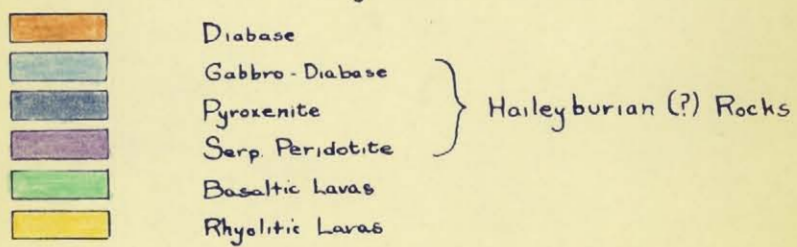 Diabase
Gabbro - Diabase
Pyroxenite
Serp. Peridotite
Haileyburian (?) Rocks
Basaltic Lavas
Rhyolitic Lavas